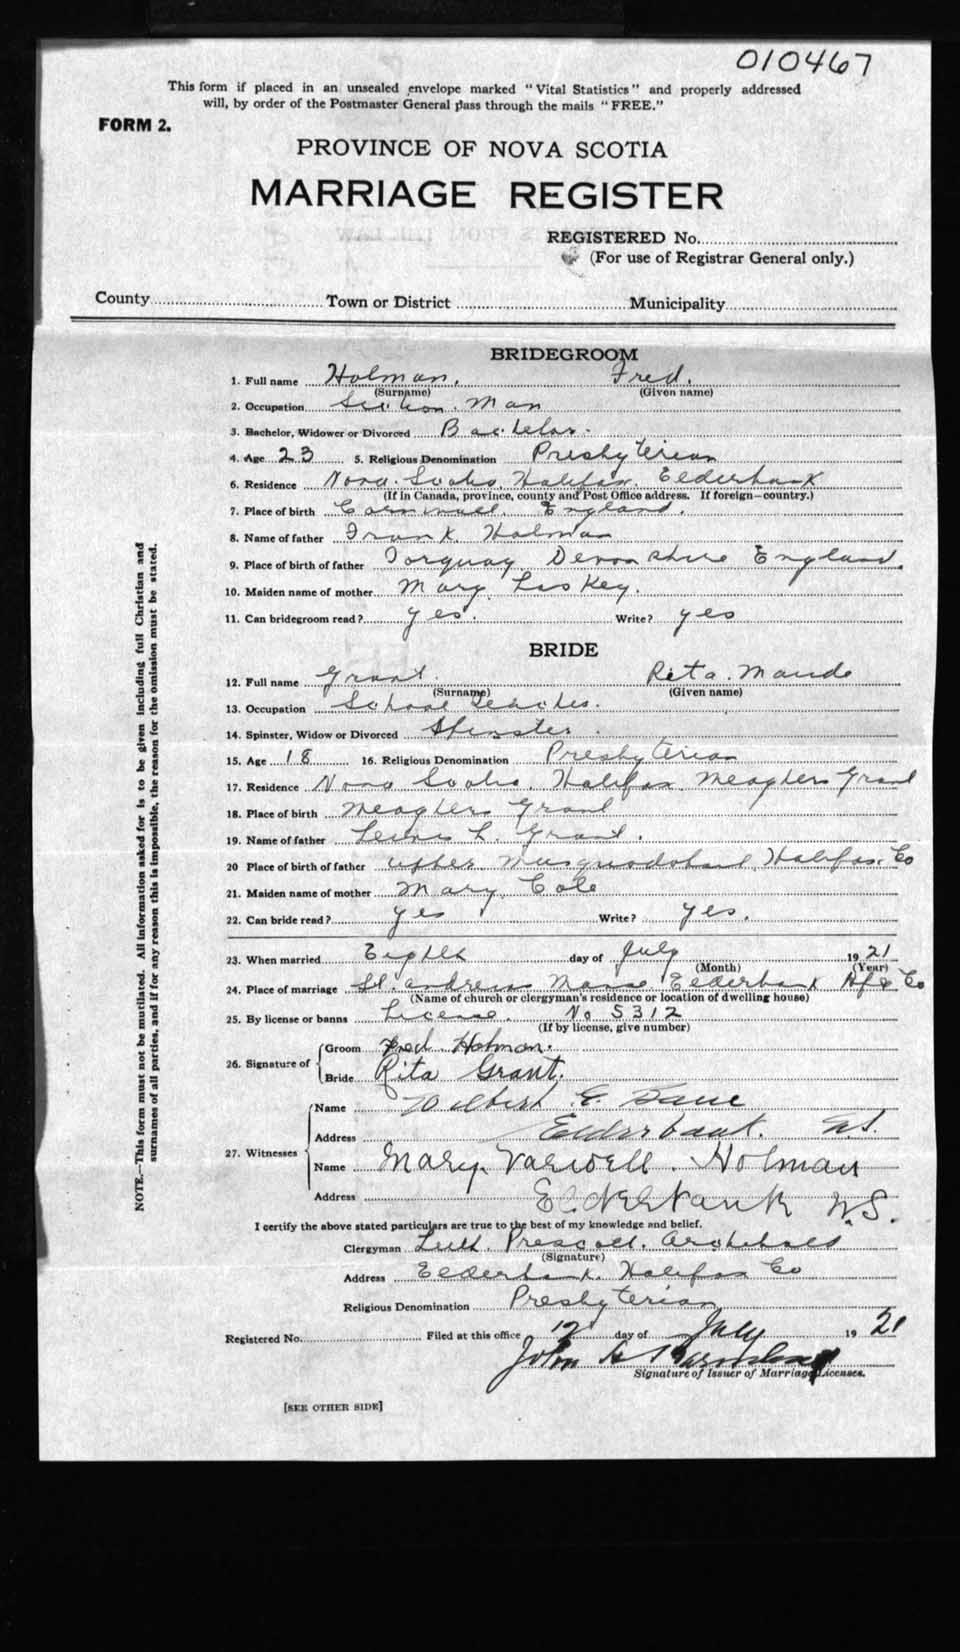 010467
This form if placed in an unsealed envelope marked "Vital Statistics" and properly addressed
will, by order of the Postmaster General pass through the mails "FREE."
FORM 2.
PROVINCE OF NOVA SCOTIA
MARRIAGE REGISTER
REGISTERED No.
(For use of Registrar General only.)
County Town or District Municipality
BRIDEGROOM
1. Full name Holman. Fred.
(Surname) (Given name)
2. Occupation Section Man
3. Bachelor, Widower or Divorced Bachelor.
4. Age 23 5. Religious Denomination Presbyterian
6. Residence Nova Scotia, Halifax, Elderbank
(If in Canada, province, county and Post Office address. If foreign—country.)
7. Place of birth Cornwall, England.
8. Name of father Frank Holman
9. Place of birth of father Torquay Devonshire England.
10. Maiden name of mother Mary Laskey.
11. Can bridegroom read? yes. Write? yes
BRIDE
12. Full name Grant. Rita Maude
(Surname) (Given name)
13. Occupation School Teacher.
14. Spinster, Widow or Divorced Spinster.
15. Age 18 16. Religious Denomination Presbyterian
17. Residence Nova Scotia, Halifax, Meaghers Grant
18. Place of birth Meaghers Grant
19. Name of father Lewis L. Grant.
20 Place of birth of father Upper Musquodoboit, Halifax Co
21. Maiden name of mother Mary Cole
22. Can bride read? yes Write? yes.
23. When married Eighth day of July 1921
(Month) (Year)
24. Place of marriage St. Andrews Manse Elderbank Hfx Co
(Name of church or clergyman's residence or location of dwelling house)
25. By license or banns License. No 5312
(If by license, give number)
26. Signature of Groom Fred Holman.
Bride Rita Grant.
27. Witnesses
Name Wilbert E.
Address Elderbank. N.S.
Name Mary Varwell. Holman
Address Elderbank N.S.
I certify the above stated particulars are true to the best of my knowledge and belief.
Clergyman Prescott Archibald
(Signature)
Address Elderbank. Halifax Co
Religious Denomination Presbyterian
Registered No. Filed at this office 12 day of July 1921
John
Signature of Issuer of Marriage Licenses.
[SEE OTHER SIDE]
NOTE.—This form must not be mutilated. All information asked for is to be given including full Christian and
surnames of all parties, and if for any reason this is impossible, the reason for the omission must be stated.